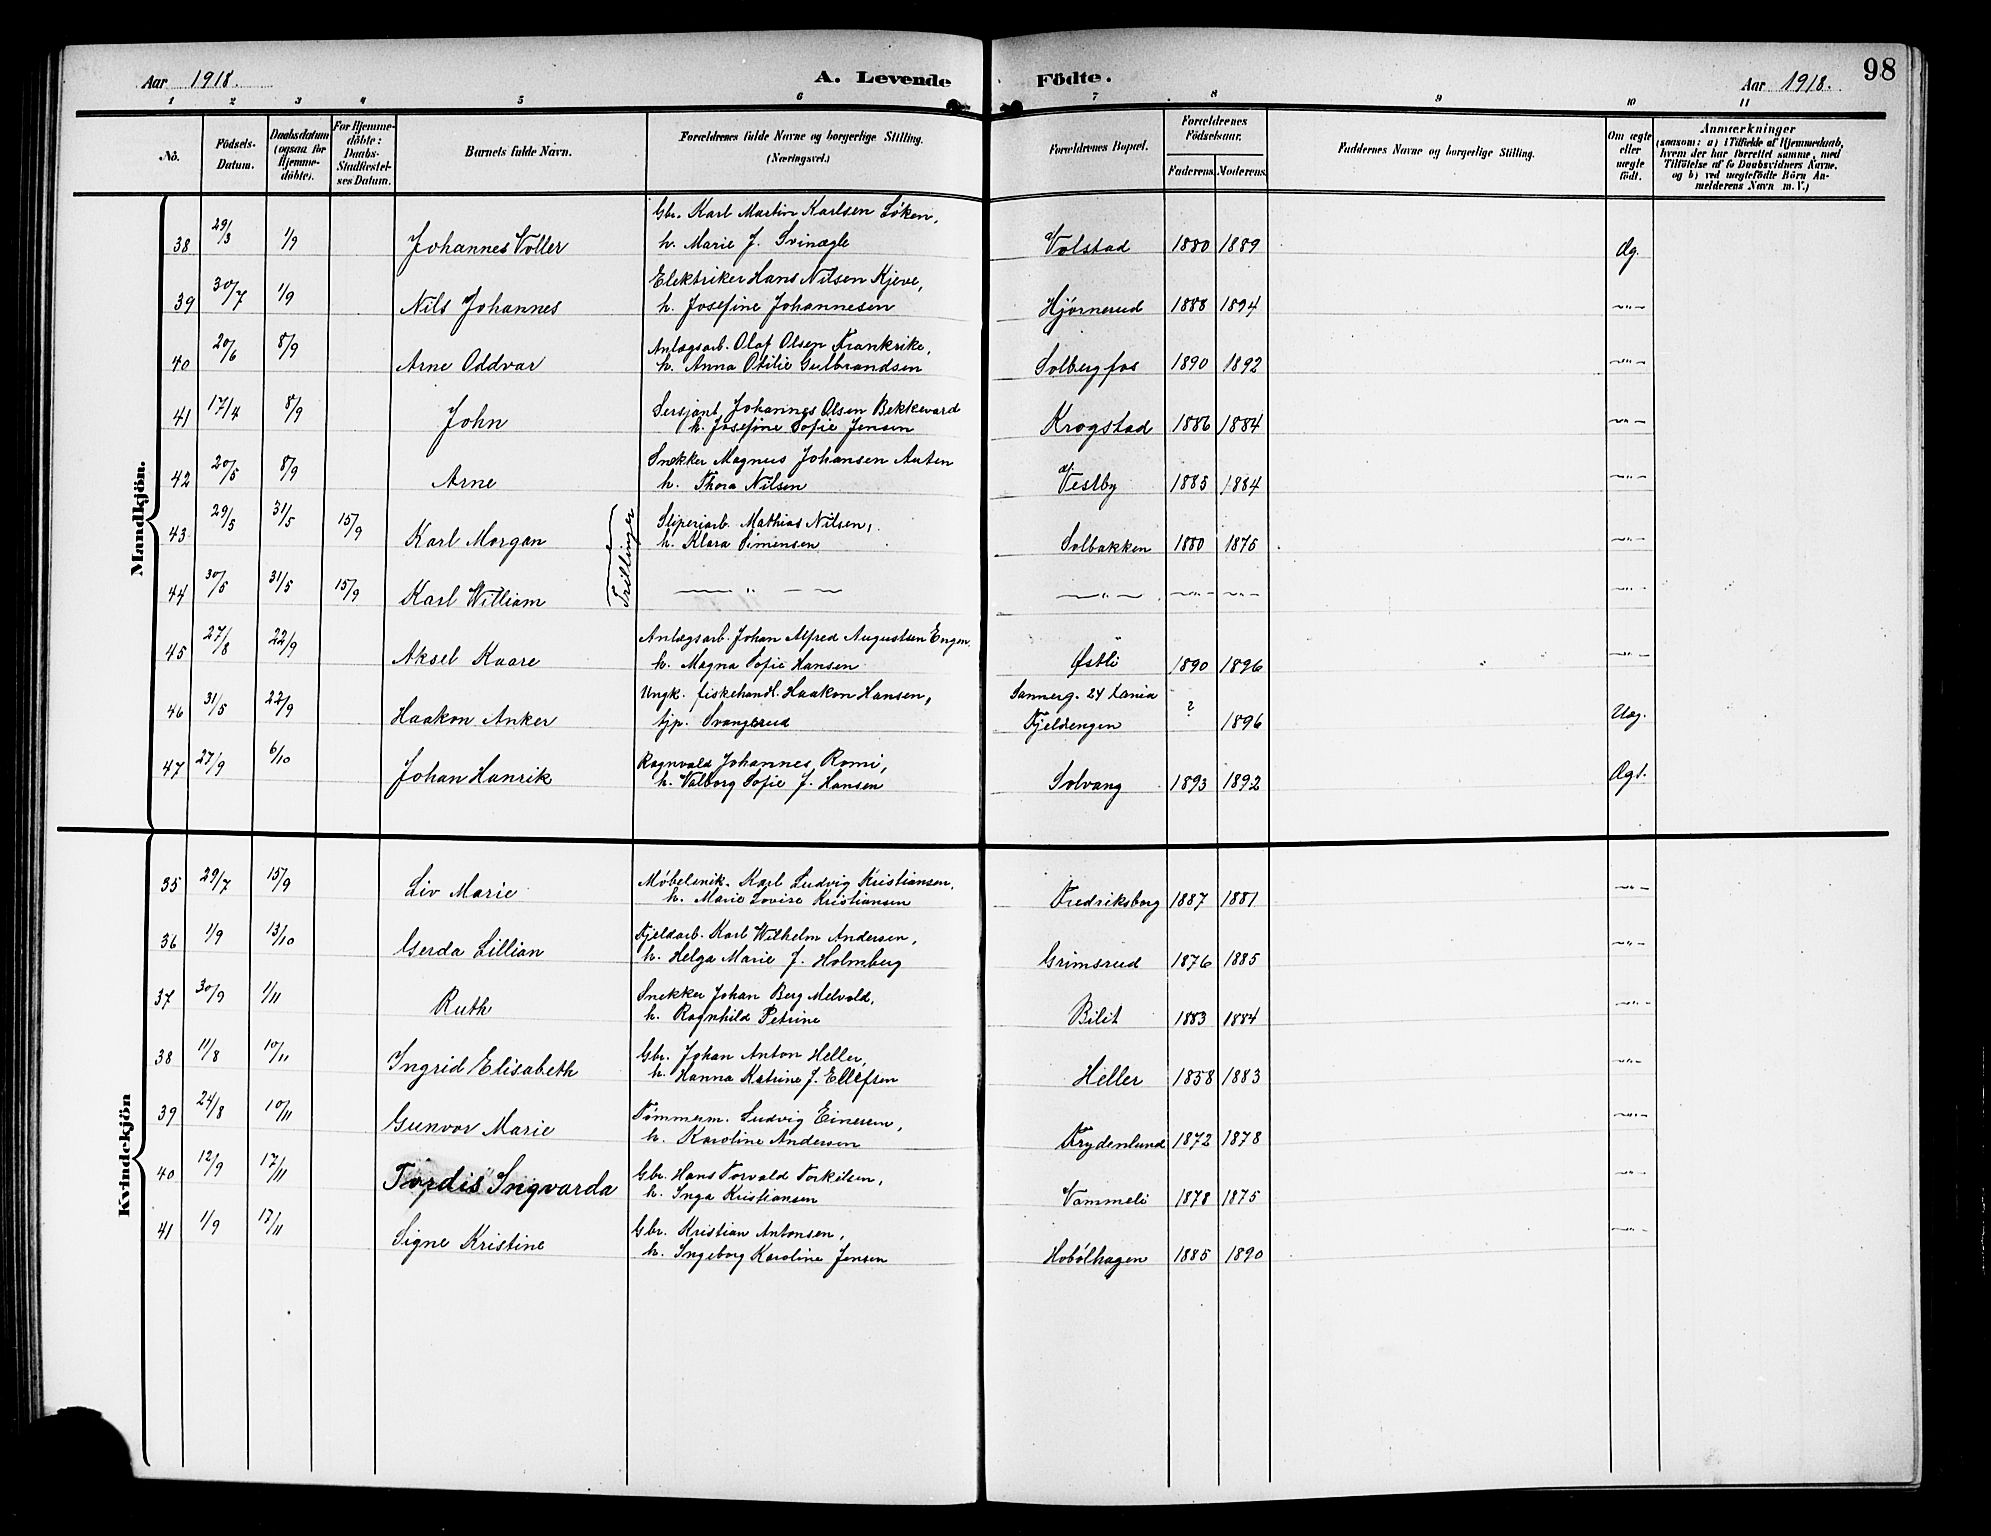 Aar 1918. A. Levende Födte. Aar 1918. 98
1 2 3 4 5 6 7 8 9 10 11
No. Födsels-Datum. Daabsdatum (ogsaa for Hjemme-döbte). For Hjemme-döbte: Daabs-Stadfæstel-ses Datum. Barnets fulde Navn. Forældrenes fulde Navne og borgerlige Stilling. (Næringsvei.) Forældrenes Bopæl. Forældrenes Födselsaar. Faderens. Moderens. Faddernes Navne og borgerlige Stilling. Om ægte eller uægte födt. Anmærkninger
(saasom: a) i Tilfælde af Hjemmedaab, hvem der har forrettet samme, med Tilföielse af to Daabsvidners Navne, og b) ved uægtefödte Börn An-melderens Navn m. V.)
Mandkjön.
38 29/3 1/9 Johannes Voller Gbr. Karl Martin Karlsen Løken,
h. Marie J. Svinægle Volstad 1880 1889 Æg.
39 30/7 1/9 Nils Johannes Elektriker Hans Nilsen Kjeve,
h. Josefine Johannesen Hjørnerud 1888 1894 —"—
40 20/6 8/9 Arne Oddvar Anlægsarb. Olaf Olsen Frankrike,
h. Anna Otilie Gulbrandsen Solbergfos 1890 1892 —"—
41 17/4 8/9 John Sersjant Johannes Olsen Bekkevard
h. Josefine Sofie Jensen Krogstad 1886 1884 —"—
42 20/5 8/9 Arne Snekker Magnus Johansen Auten
h. Thora Nilsen Vestby 1885 1884 —"—
43 29/5 31/5 15/9 Karl Morgan Trillinger Sliperiarb. Mathias Nilsen,
h. Klara Simensen Solbakken 1880 1875 —"—
44 30/5 31/5 15/9 Karl William — " — — — " — —"— —"— —"—
45 27/8 22/9 Aksel Kaare Anlægsarb. Johan Alfred Augustsen Engen
h. Magna Sofie Hansen Østli 1890 1896 —"—
46 31/5 22/9 Haakon Anker Ungk. fiskehandl. Haakon Hansen, Sannerg. 24 ?
tjp. Svangerud Fjeldengen 1896 Uæg.
47 27/9 6/10 Johan Hanrik Ragnvald Johannes Romi,
h. Valborg Sofie J. Hansen Solvang 1893 1892 Ægt.
Kvindekjön
35 29/7 15/9 Liv Marie Møbelsnik. Karl Ludvig Kristiansen,
h. Marie Lovise Kristiansen Fredriksborg 1887 1881 —"—
36 1/9 13/10 Gerda Lillian Fjeldarb. Karl Wilhelm Andersen,
h. Helga Marie J. Holmberg Grimsrud 1876 1885 —"—
37 30/9 1/11 Ruth Snekker Johan Berg Melvold,
h. Ragnhild Petrine Bilit 1883 1884 —"—
38 11/8 10/11 Ingrid Elisabeth Gbr. Johan Anton Heller,
h. Hanna Katrine J. Ellefsen Heller 1858 1883 —"—
39 24/8 10/11 Gunvor Marie Tømmerm. Ludvig Einersen,
h. Karoline Andersen Frydenlund 1872 1878 —"—
40 12/9 17/11 Tordis Ingvarda Gbr. Hans Torvald Torkilsen,
h. Inga Kristiansen Vammeli 1878 1875 —"—
41 1/9 17/11 Signe Kristine Gbr. Kristian Antonsen,
h. Ingeborg Karoline Jensen Hobølhagen 1885 1890 —"—